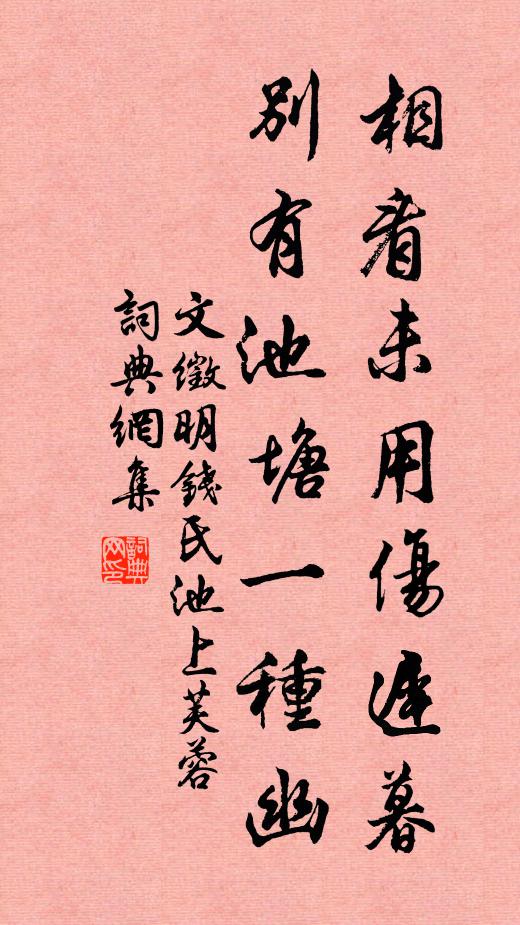 相看未用傷遲暮
別有池塘一種幽
文徵明錢氏池上芙蓉
詞典網集
詞典网印